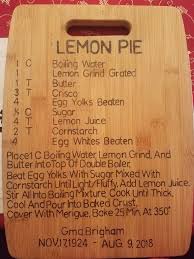 LEMON PIE
1 C Boiling Water
1 Lemon Grind Grated
1 T Butter
3 T Crisco
4 Egg Yolks Beaten
Sugar
4 T Lemon Juice
2 T Cornstarch
4 Egg Whites Beaten
Place 1 C Boiling Water Lemon Grind, And
Butter Into Top Of Double Boiler,
Beat Egg Yolks With Sugar Mixed With
Cornstarch Until Light/Fluffy, Add Lemon Juice.
Stir All Into Boiling Mixture Cook Until Thick,
Cool And Pour Into Baked Crust,
Cover With Merigue, Bake 25 Min. At 350°
Gma Brigham
NOV.17,1924 - AUG. 9, 2018